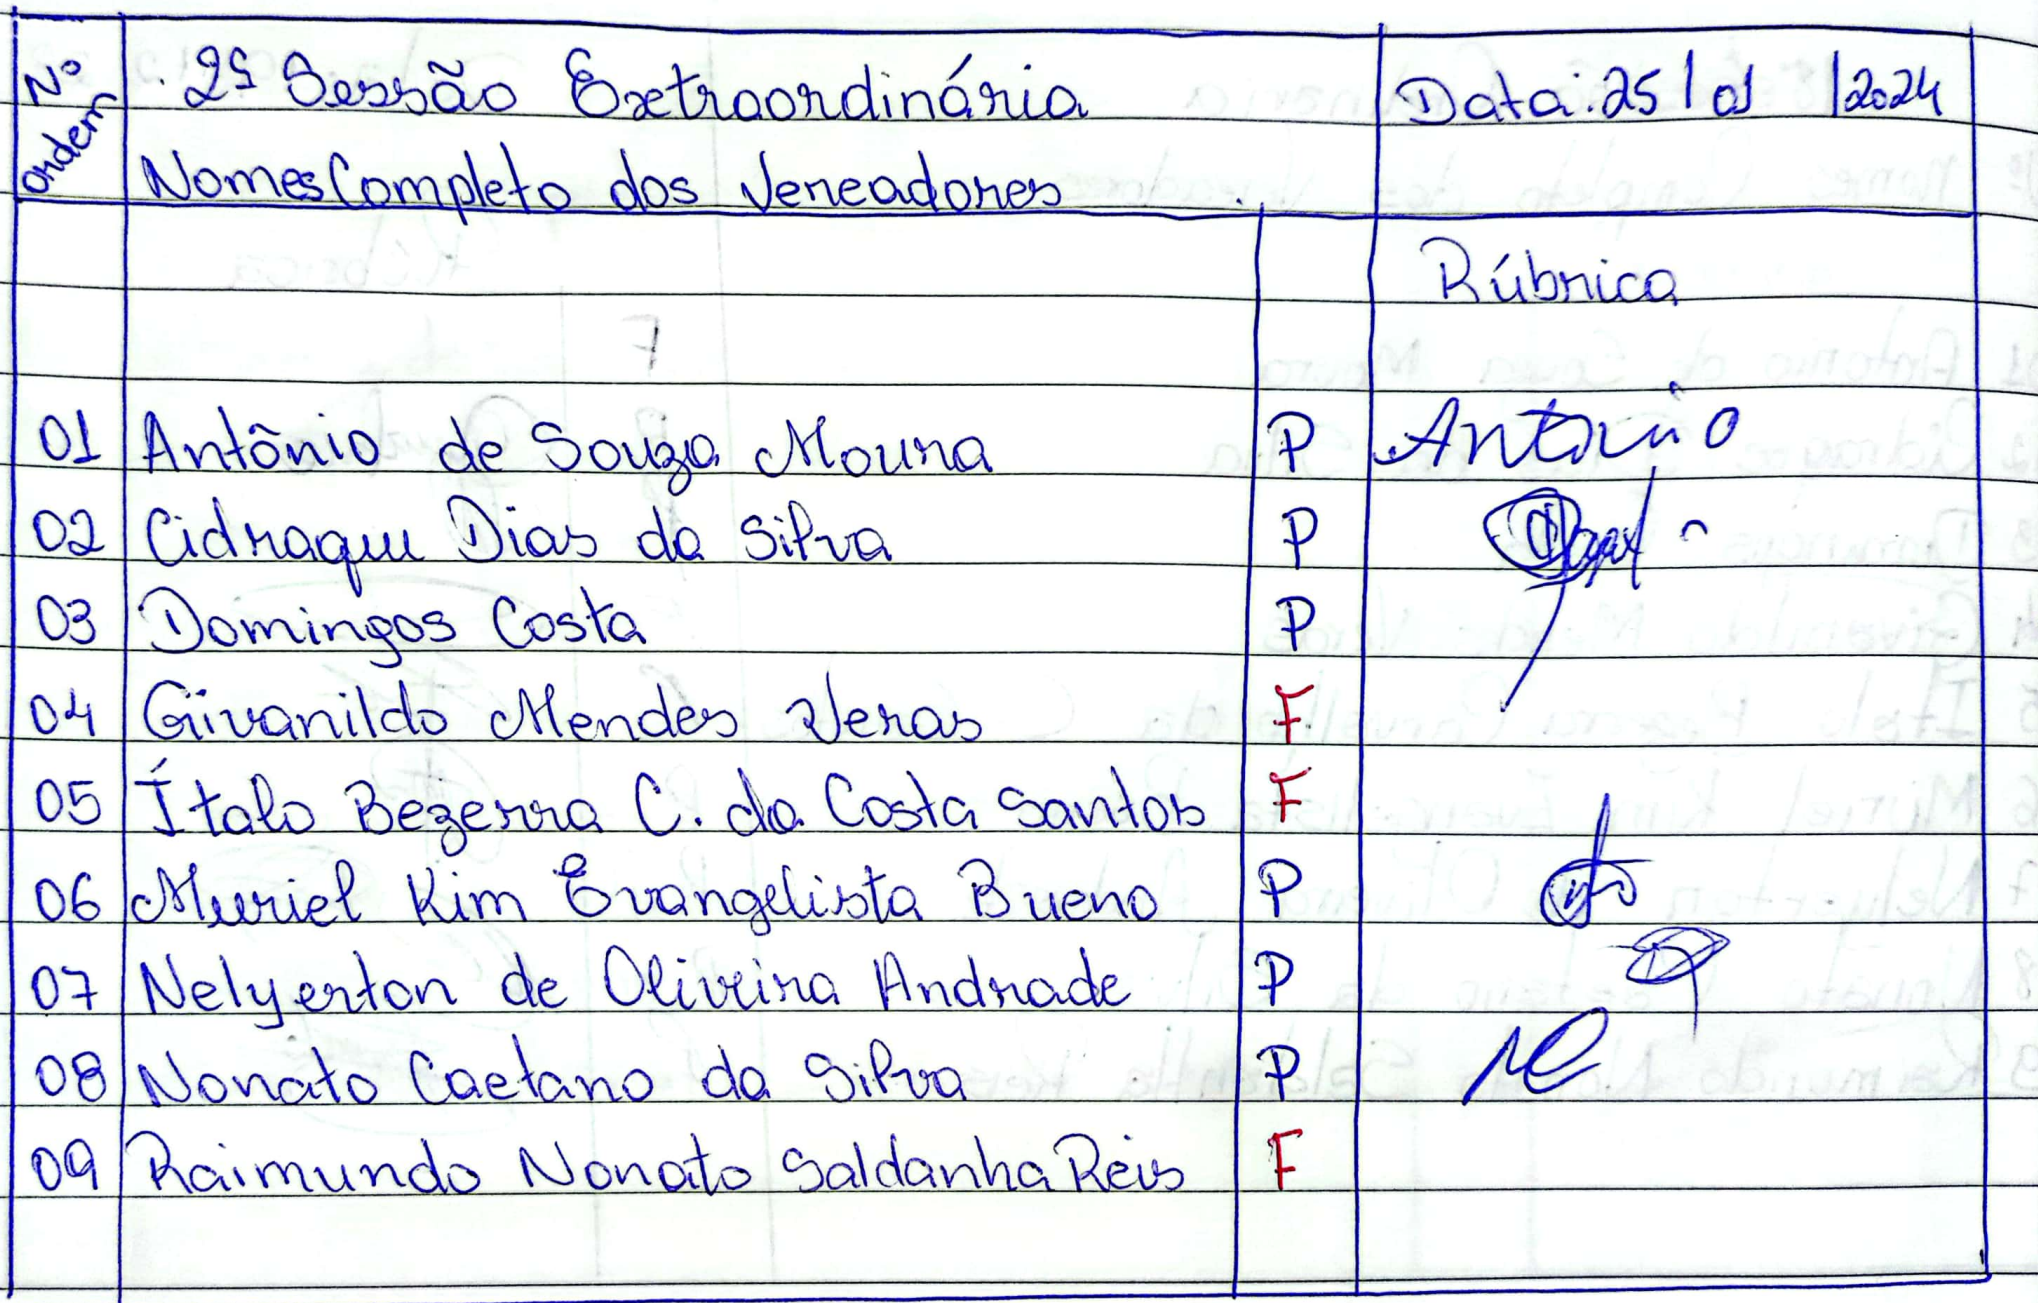 Nº ordem 2ª Sessão Extraordinária Data: 25/01/2024
Nomes Completo dos Vereadores
Rúbrica
01 Antônio de Souza Moura P Antonio
02 Cidraque Dias da Silva P
03 Domingos Costa P
04 Givanildo Mendes Veras F
05 Ítalo Bezerra C. da Costa Santos F
06 Muriel Kim Evangelista Bueno P
07 Nelyerton de Oliveira Andrade P
08 Nonato Caetano da Silva P
09 Raimundo Nonato Saldanha Reis F